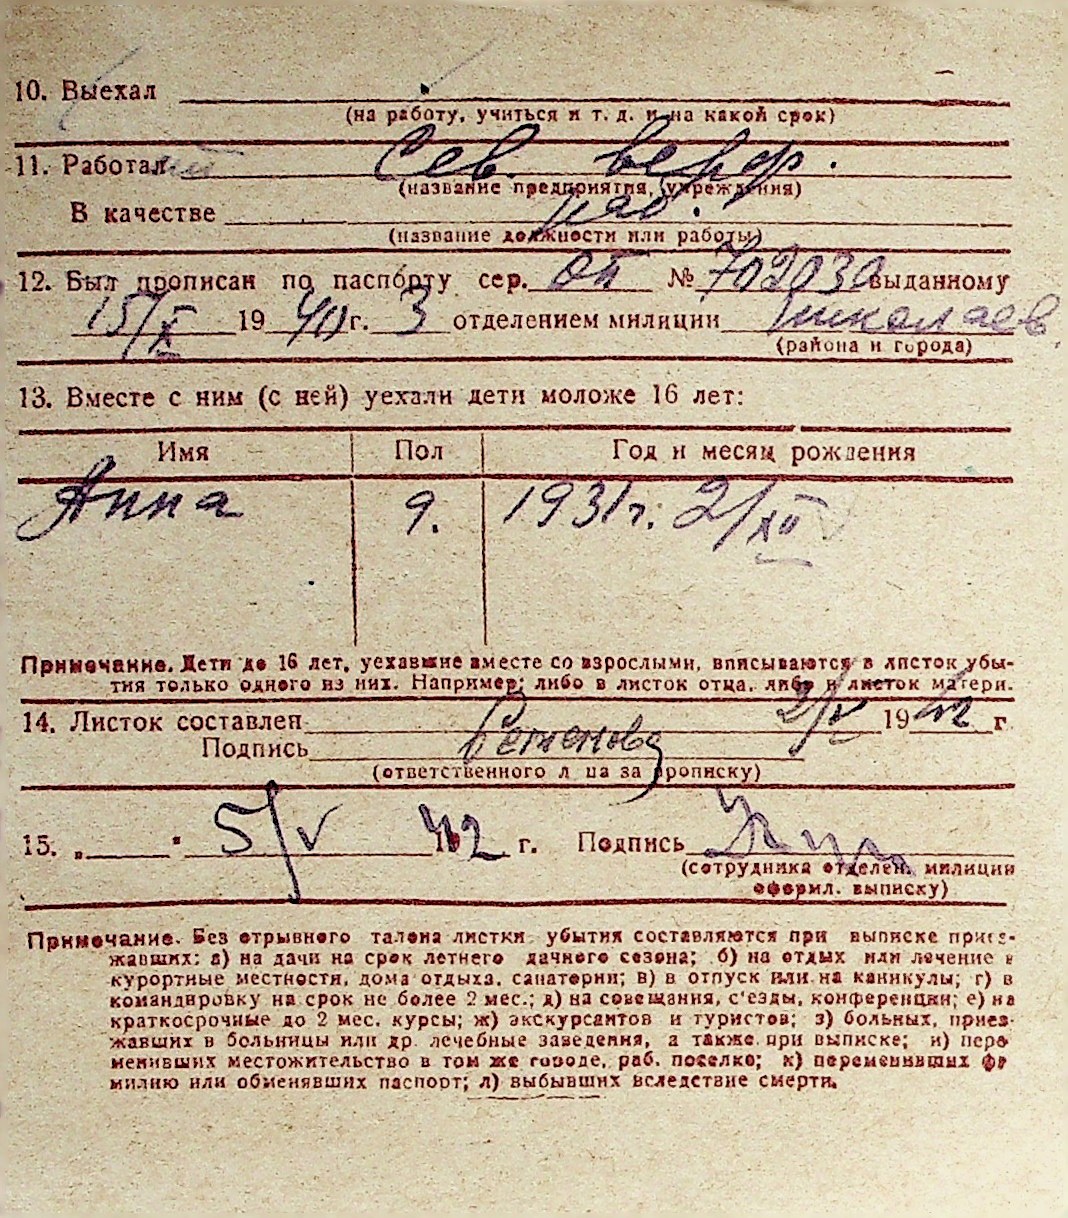 10. Выехал
(на работу, учиться и т. д. и на какой срок)
11. Работал Сев. верф.
(название предприятия, учреждения)
В качестве раб.
(название должности или работы)
12. Был прописан по паспорту сер. ОП № 702030 выданному
15/X 1940 г. 3 отделением милиции Николаев.
(района и города)
13. Вместе с ним (с ней) уехали дети моложе 16 лет:
Имя Пол Год и месяц рождения
Анна 9. 1931 г. 2/XII
Примечание. Дети до 16 лет, уехавшие вместе со взрослыми, вписываются в листок убы-
тия только одного из них. Например: либо в листок отца, либо в листок матери.
14. Листок составлен 2/V 1942 г
Подпись Семенова
(ответственного лица за прописку)
15. „ " 5/V 42 г. Подпись
(сотрудника отделен. милиции
оформил. выписку)
Примечание. Без отрывного талона листки убытия составляются при выписке приез-
жавших: а) на дачи на срок летнего дачного сезона; б) на отдых или лечение в
курортные местности, дома отдыха, санатории; в) в отпуск или на каникулы; г) в
командировку на срок не более 2 мес.; д) на совещания, с'езды, конференции; е) на
краткосрочные до 2 мес. курсы; ж) экскурсантов и туристов; з) больных, приез-
жавших в больницы или др. лечебные заведения, а также при выписке; и) пере
менивших местожительство в том же городе, раб. поселке; к) переменивших фа
милию или обменявших паспорт; л) выбывших вследствие смерти.